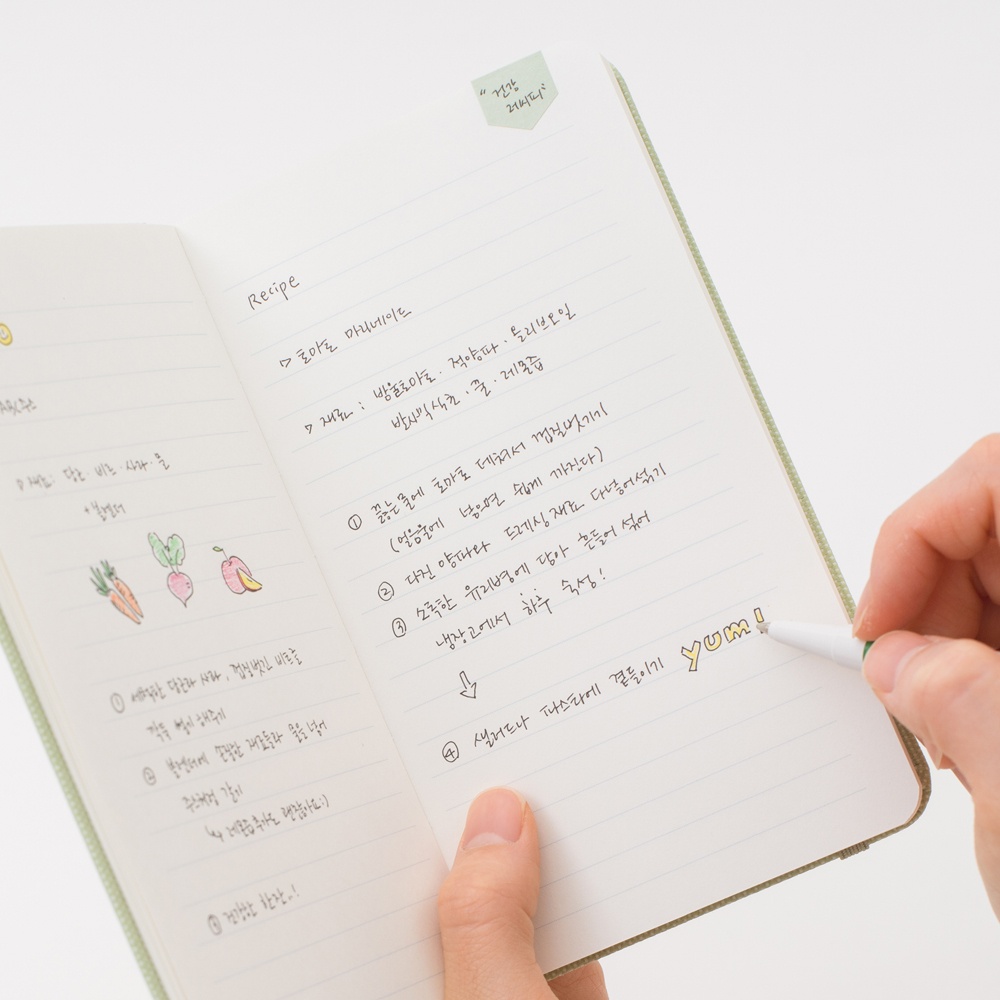 ABC주스
▷ 재료: 당근·비트·사과·물
+ 블렌더
① 세척한 당근과 사과, 껍질벗긴 비트를
깍둑 썰기 해주기
② 블렌더에 손질한 재료들과 물을 넣어
주스처럼 갈기
↳ 레몬즙 추가도 괜찮아요:)
③ 건강한 한잔~!
"건강
레시피"
Recipe
▷ 토마토 마리네이드
▷ 재료 : 방울토마토 · 적양파 · 올리브오일
발사믹식초 · 꿀 · 레몬즙
① 끓는물에 토마토 데쳐서 껍질벗기기
(얼음물에 넣으면 쉽게 까진다)
② 다진 양파와 드레싱 재료 다넣어섞기
③ 소독한 유리병에 담아 흔들어 섞어
냉장고에서 하루 숙성!
↓
④ 샐러드나 파스타에 곁들이기 yum!